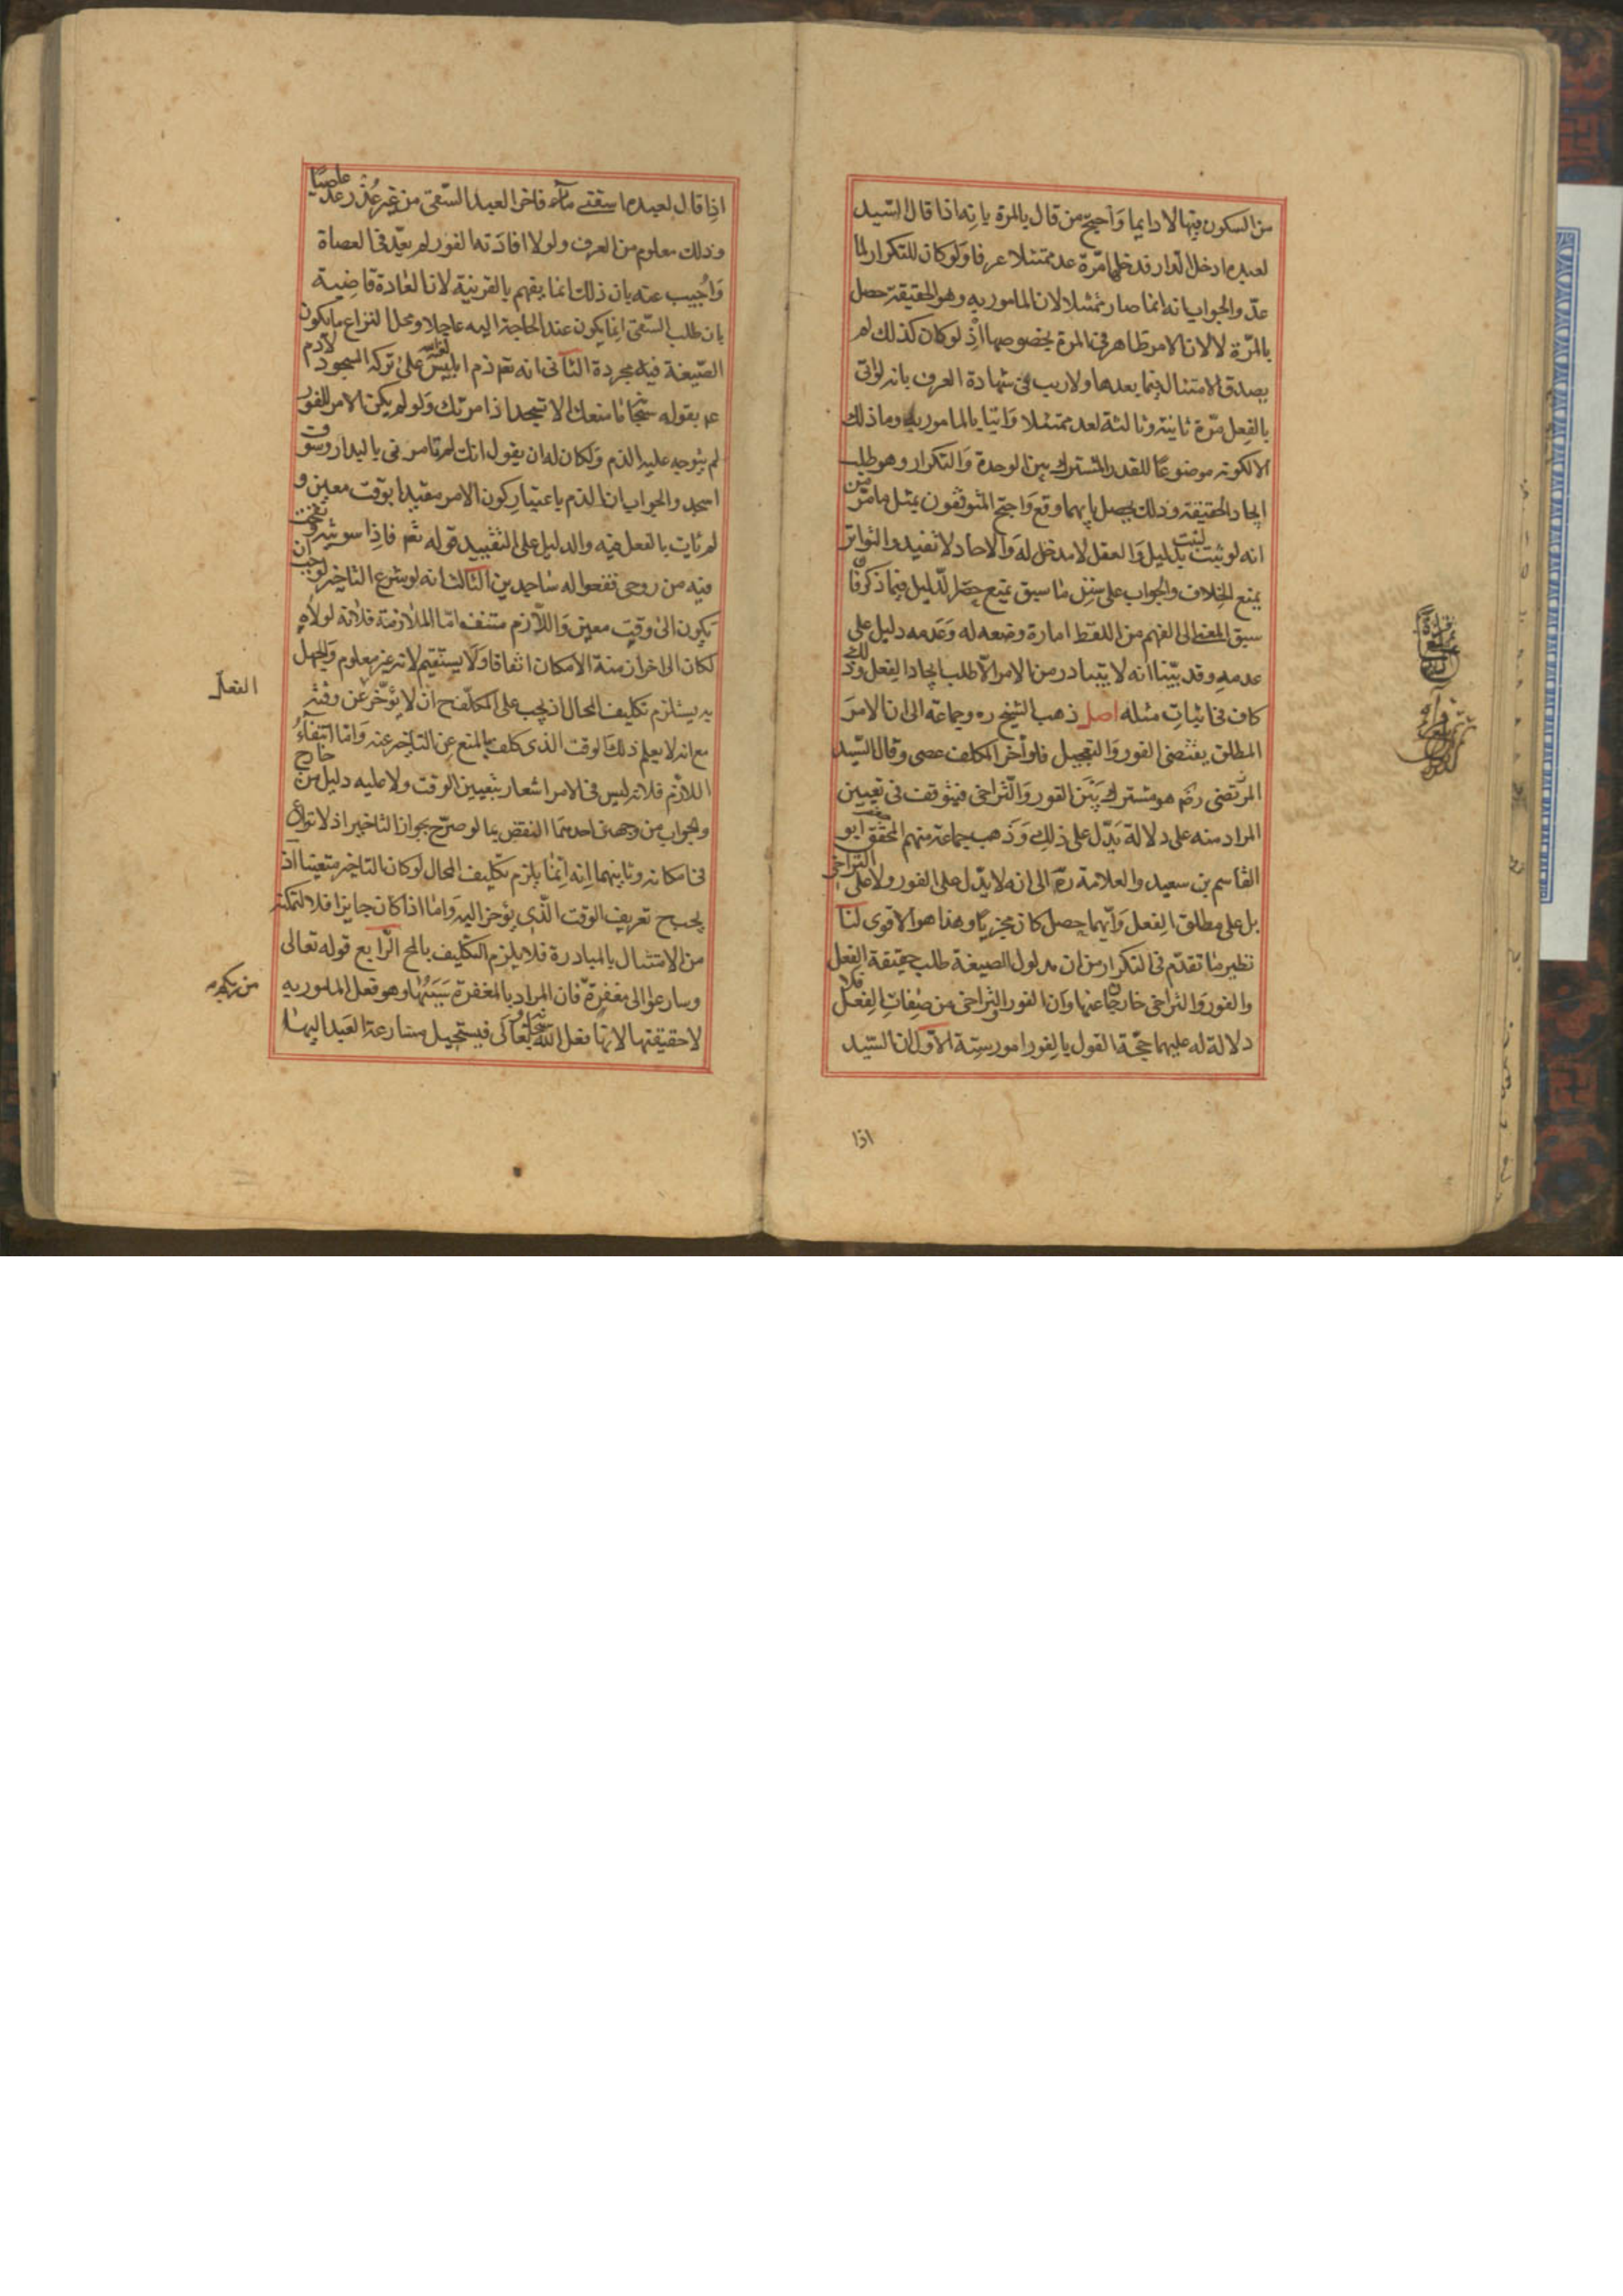 من السكون فيها لا دايما وَاحتجّ من قال بالمرة بانه اذا قال السّيد
لعبده ادخل الدار فدخلها مرّة عد ممتثلا عرفا وَلو كان للتكرار لما
عدّ والجواب انه انما صار ممتثلا لان المامور به وهو الحقيقة حصل
بالمرّة لا لان الامر ظاهر في المرة بخصوصها اذ لو كان كذلك لم
يصدق الامتثال فيما بعدها ولا ريب في شهادة العرف بانه لو اتى
بالفعل مرّة ثانية وثالثة لعد ممتثلا وَاتيا بالمامور به وما ذلك
الا لكونه موضوعًا للقدر المشترك بين الوحدة وَالتكرار وهو طلب
ايجاد الحقيقة وذلك يحصل بايهما وقع وَاحتج المتوقفون بمثل ما مرّ من
انه لو ثبت لثبت بدليل وَالعقل لا مدخل له وَالاحاد لا تفيد والتواتر
يمنع الخلاف والجواب على سنن ما سبق بمنع حصر الدّليل فيما ذكر فان
سبق المعنى الى الفهم من اللفظ امارة وضعه له وَعدمه دليل على
عدمه وقد بيّنا انه لا يتبادر من الامر الّا طلب ايجاد الفعل وذلك
كاف في اثبات مثله اصل ذهب الشيخ ره وجماعة الى ان الامرَ
المطلق يقتضى الفور وَالتعجيل فلو أخر المكلف عصى وقال السّيد
المرتضى رضم هو مشترك بَيْن الفور وَالتّراخى فيتوقف في تعيين
المراد منه على دلالة يَدّل على ذلك وَذهب جماعة منهم المحقق ابو
القاسم بن سعيد والعلامة رهَ الى انه لا يدّل على الفور ولا على التراخى
بل على مطلق الفعل وَايّهما حصل كان مجزيًا وهذا هو الاقوى لنا
نظير ما تقدّم فى التكرار من ان مدلول الصيغة طلب حقيقة الفعل
والفور وَالتراخى خارجان عنها وَان الفور والتراخى من صفات الفعل فلا
دلالة له عليهما حجّة القول بالفور امور ستة الاوّل ان السّيد
اذا
اذا قال لعبده اسقنى ماء فاخر العبد السّقى من غير عُذر عد عاصيًا
وذلك معلوم من العرف ولولا افادَته الفور لم يعدّ فى العصاة
وَاُجيب عنه بان ذلك انما يفهم بالقرينة لان العادة قاضية
بان طلب السّقى انما يكون عند الحاجة اليه عاجلا ومحل النزاع ما يكون
الصّيغة فيه مجردة الثانى انه تعم ذم ابليس لعنه على تركه السجود لادم
عم بقوله ما منعك الا تسجد اذ امرتك وَلو لم يكن الامر للفور
لم يتوجه عليه الذم وَلكان له ان يقول انك لم تامرنى بالبدار وسوف
اسجد والجواب ان الذم باعتبار كون الامر مقيدا بوقت معين و
لم يات بالفعل فيه والدليل على التقييد قوله تعم فاذا سويته ونفخت
فيه من روحى فقعوا له ساجدين الثالث انه لو شرع التاخير لوجب ان
يكون الى وقت معين وَاللّازم منتف امّا الملازمة فلانه لولاه
لكان الى اخر ازمنة الامكان اتفاقا وَلا يستقيم لانه غير معلوم وَالجهل
به يستلزم تكليف المحال اذ يجب على المكلّف ح ان لا يؤخّر عن وقته
الفعل
مع انه لا يعلم ذلك الوقت الذى كلف بالمنع عن التاخير عنه وَامّا انتفاءُ
اللازم فلانه ليس فى الامر اشعار بتعيين الوقت ولا عليه دليل من خارج
والجواب من وجهين احدهما النقض بما لو صرّح بجواز التاخير اذ لا نزاع
فى امكانه وثانيهما انه انّما يلزم تكليف المحال لو كان التاخير متعينا اذ
يجب ح تعريف الوقت الّذى يؤخر اليه وَامّا اذا كان جايزا فلا لتمكنه
من الامتثال بالمبادرة فلا يلزم التكليف بالمح الرّابع قوله تعالى
وسارعوا الى مغفرة فان المراد بالمغفرة سَبَبُها وهو فعل المامور به
من ربكم
لا حقيقتها لانها فعل الله سبحانه وتعالى فيستحيل مسارعة العبد اليها